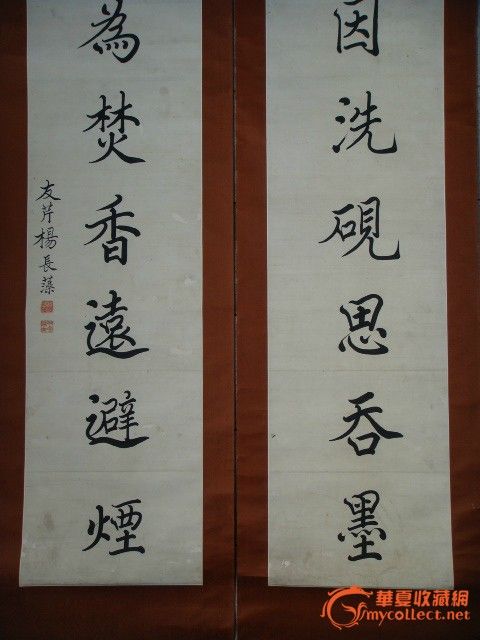 因洗硯思吞墨
為焚香遠避煙
友芹楊長藻
華夏收藏網
mycollect.net